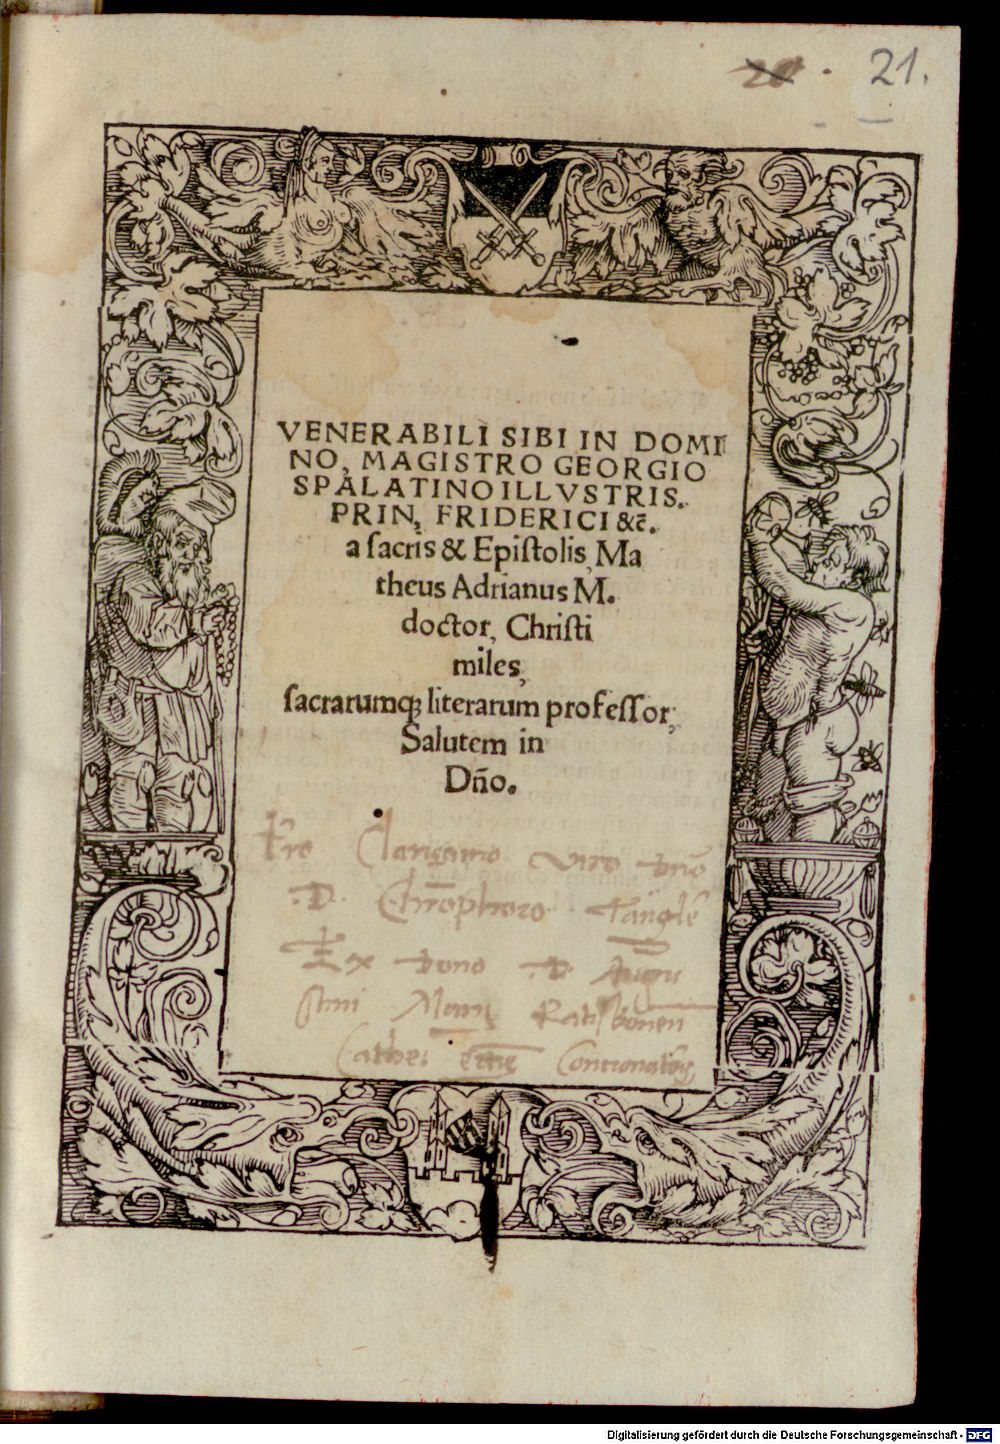 21.
VENERABILI SIBI IN DOMI
NO, MAGISTRO GEORGIO
SPALATINO ILLVSTRIS.
PRIN, FRIDERICI &c̄.
a sacris & Epistolis, Ma
theus Adrianus M.
doctor, Christi
miles,
sacrarumq; literarum professor,
Salutem in
Dño.
Pro Clarissimo viro dño
D. Chrōphoro Tängle
Ex dono D. Augu
stini Marij Ratisbonen
Cathe. Contionatoris
Digitalisierung gefördert durch die Deutsche Forschungsgemeinschaft - DFG